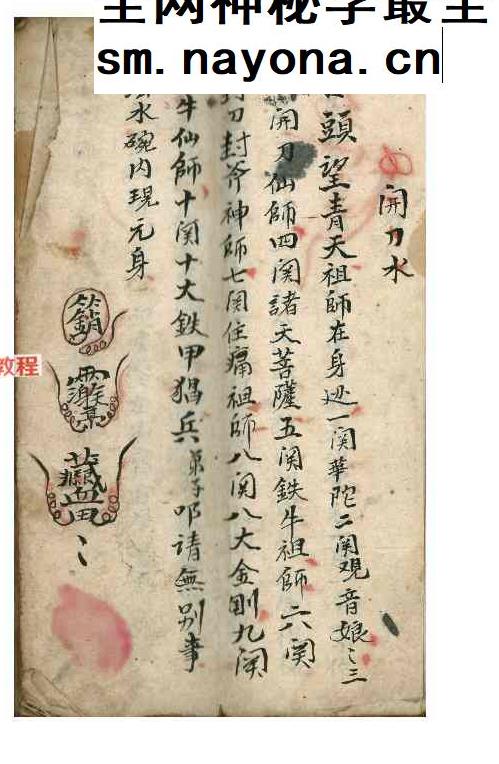 全网神秘学最全
sm.nayona.cn
教程
開刀水
頭望青天祖師在身边一関華陀二関观音娘〻三
開刀仙師四関諸天菩薩五関鉄牛祖師六関
刀封斧神師七関住痛祖師八関八大金剛九関
牛仙師十関十大鉄甲猖兵弟子叩請無别事
水碗内現元身